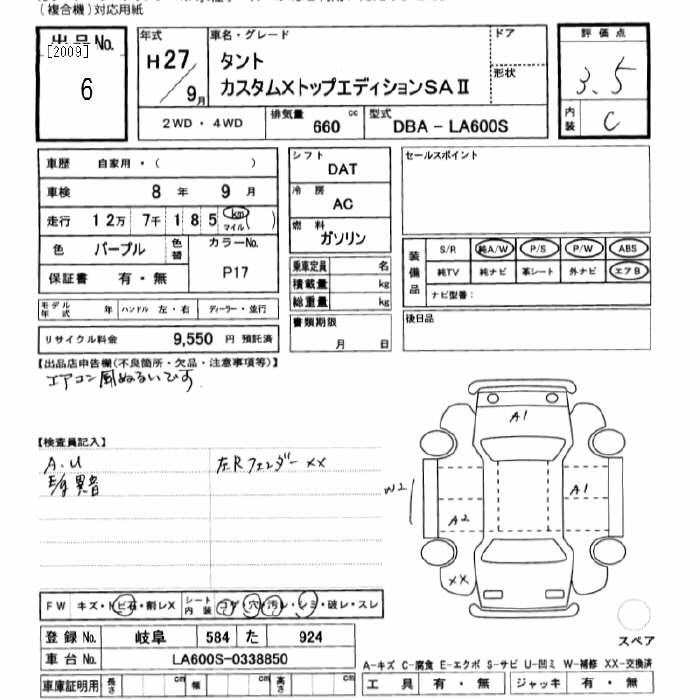 (複合機)対応用紙
出品No.
[2009]
6
年式
H27/9月
車名・グレード
タント
カスタムXトップエディションSAⅡ
ドア
形状
評価点
3.5
内装
C
2WD・4WD
排気量 660 cc
型式 DBA-LA600S
車歴 自家用・( )
車検 8年 9月
走行 12万 7千 185 km マイル ( )
色 パープル 色替
カラーNo. P17
保証書 有・無
モデル年式 年 ハンドル 左・右 ディーラー・並行
リサイクル料金 9,550 円 預託済
シフト DAT
冷房 AC
燃料 ガソリン
乗車定員 名
積載量 kg
総重量 kg
書類期限 月 日
セールスポイント
装備品
S/R 純A/W P/S P/W ABS
純TV 純ナビ 革シート 外ナビ エアB
ナビ型番:
後日品
【出品店申告欄(不良箇所・欠品・注意事項等)】
エアコン風ぬるいです
【検査員記入】
A.U
左Rフェンダー XX
異音
A1
W2
A2
A1
XX
スペア
FW キズ・トビ石・割レX
シート内装 コゲ・穴・汚レ・シミ・破レ・スレ
登録No. 岐阜 584 た 924
車台No. LA600S-0338850
車庫証明用 長さ cm 幅 cm 高さ cm
A-キズ C-腐食 E-エクボ S-サビ U-凹ミ W-補修 XX-交換済
工具 有・無 ジャッキ 有・無